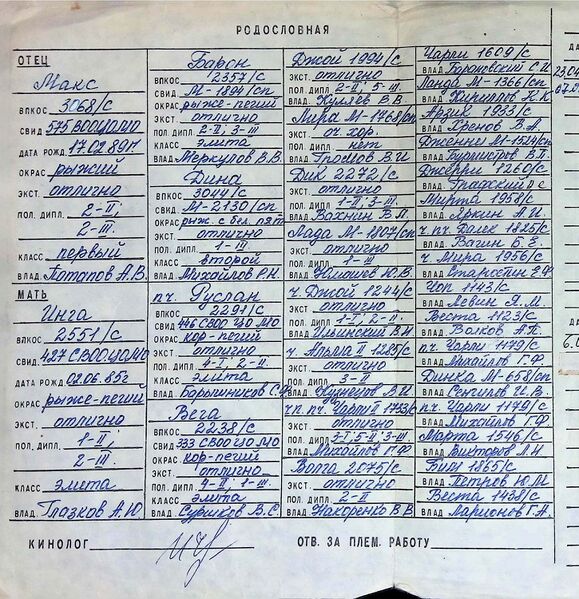 РОДОСЛОВНАЯ
ОТЕЦ
Макс
ВПКОС 3068/с
СВИД. 575 ВООЦОМО
ДАТА РОЖД. 17.02.89г.
ОКРАС рыжий
ЭКСТ. отлично
ПОЛ. ДИПЛ. 2-II,
2-III.
КЛАСС первый
ВЛАД. Потапов А.В.
МАТЬ
Инга
ВПКОС 2551/с
СВИД. 427 СВООЦОМО
ДАТА РОЖД. 02.06.85г
ОКРАС рыже-пегий
ЭКСТ. отлично
ПОЛ. ДИПЛ. 1-II,
2-III.
КЛАСС элита
ВЛАД. Глазков А.Ю.
Барон
ВПКОС 2357/с
СВИД. М-1894/сп
ОКРАС рыже-пегий
ЭКСТ. отлично
ПОЛ. ДИПЛ. 2-II, 3-III
КЛАСС элита
ВЛАД. Меркулов В.В.
Дина
ВПКОС 3014/с
СВИД. М-2130/сп
ОКРАС рыж. с бел. пят
ЭКСТ. отлично
ПОЛ. ДИПЛ. 1-III
КЛАСС второй
ВЛАД. Михайлов Р.Н.
п.ч. Руслан
ВПКОС 2291/с
СВИД. 446 СВОО ЦО МО
ОКРАС кор-пегий
ЭКСТ. отлично
ПОЛ. ДИПЛ. 4-I, 2-II.
КЛАСС элита
ВЛАД. Барышников
Вега
ВПКОС 2238/с
СВИД. 333 СВОО ЦО МО
ОКРАС кор-пегий
ЭКСТ. отлично
ПОЛ. ДИПЛ. 4-II, 1-III.
КЛАСС элита
ВЛАД. Суриков В.С.
Джой 1994/с
ЭКСТ. отлично
ПОЛ. ДИПЛ. 2-II, 5-III.
ВЛАД. Куляев В.В
Лира М-1768/сп
ЭКСТ. оч. хор.
ПОЛ. ДИПЛ. нет
ВЛАД. Громов В.И
Дик 2272/с
ЭКСТ. отлично
ПОЛ. ДИПЛ. 1-II, 3-III.
ВЛАД. Вахнин В.П.
Лада М-1807/сп
ЭКСТ. отлично
ПОЛ. ДИПЛ. 1-III
ВЛАД. Ю.В.
ч. Джой 1244/с
ЭКСТ. отлично
ПОЛ. ДИПЛ. 1-I, 2-II.
ВЛАД. Ильинский В.И
ч. Альма II 1285/с
ЭКСТ. отлично
ПОЛ. ДИПЛ. 3-II
ВЛАД. Кузнецов В.И
ч.п. п.ч. Чарли II 1733/с
ЭКСТ. отлично
ПОЛ. ДИПЛ. 5-II, 3-III.
ВЛАД. Михайлов Г.Ф
Волга 2075/с
ЭКСТ. отлично
ПОЛ. ДИПЛ. 2-II
ВЛАД. Накоренко В.В.
Чарли 1609/с
ВЛАД. Барановский С.И
Ланда М-1366/сп
ВЛАД. Кириллов К.К
Арзик 1933/с
ВЛАД. Хренов В.А.
Дженни М-1524/сп
ВЛАД. Бурмистров В.П.
Джерри 1260/с
ВЛАД. Графский
Мирта 1958/с
ВЛАД. Яркин А.И.
ч. п.ч. Далек 1825/с
ВЛАД. Вагин Б.Е.
ч. Мира 1956/с
ВЛАД. Старостин Е.Ф
Чоп 1143/с
ВЛАД. Левин Я.М
Веста 1123/с
ВЛАД. Волков А.П.
п.ч. Чарли 1179/с
ВЛАД. Михайлов Г.Ф
Динка М-658/сп
ВЛАД. Сенгилов И.В.
п.ч. Чарли 1179/с
ВЛАД. Михайлов Г.Ф
Марта 1546/с
ВЛАД. Викторов Л.И
Бим 1865/с
ВЛАД. Петров Ю.М
Веста 1438/с
ВЛАД. Ларионов Г.А.
КИНОЛОГ
ОТВ. ЗА ПЛЕМ. РАБОТУ